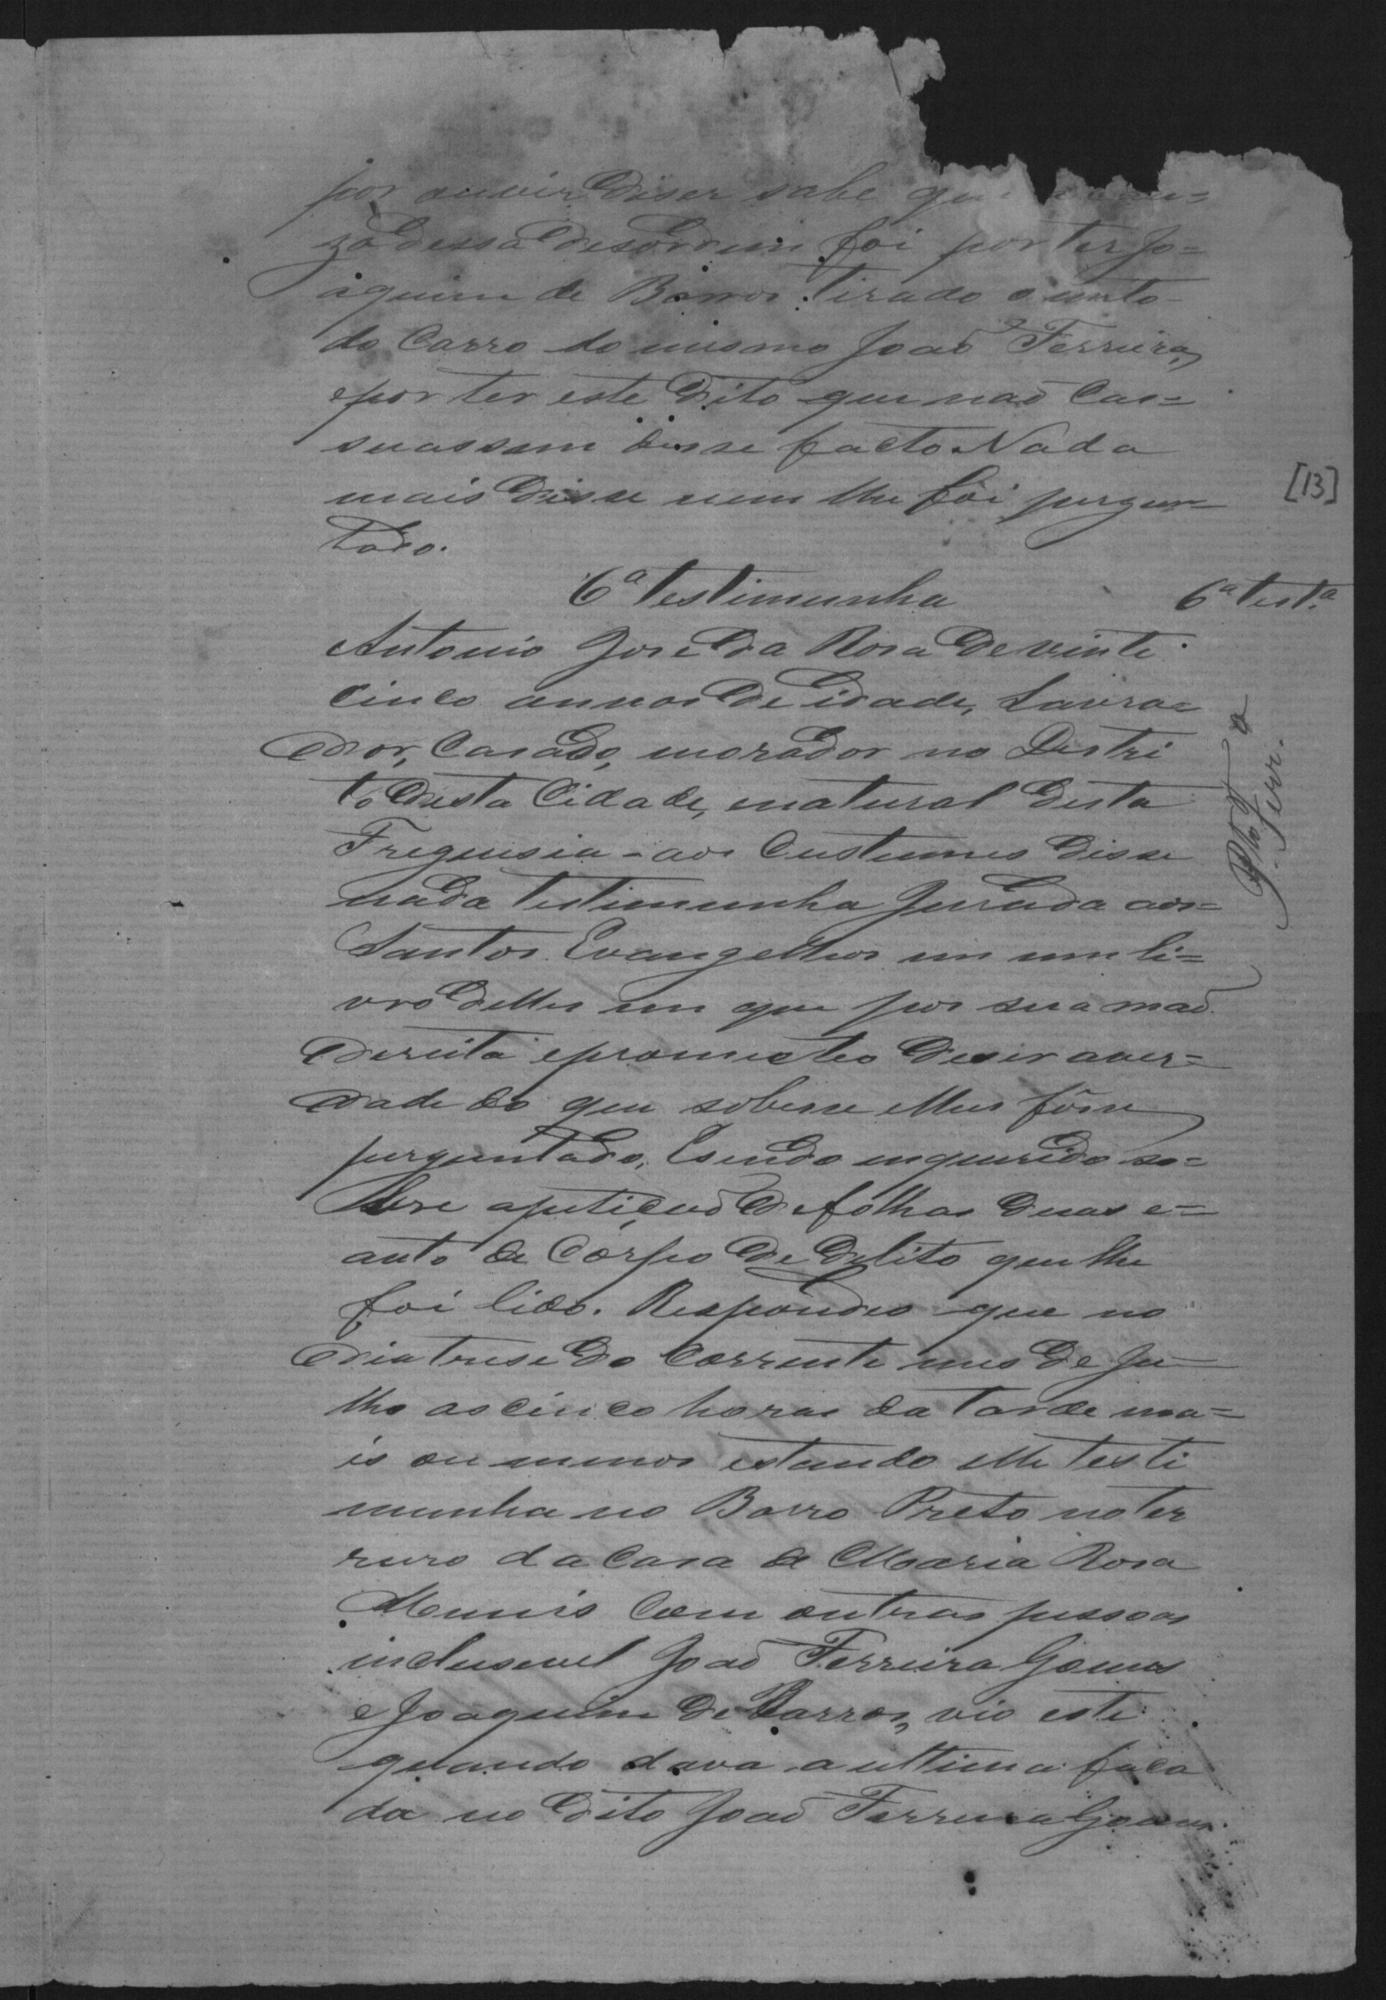 por ouvir diser sabe que
zã dessa desordem foi por ter Jo=
aquim de Barros tirado o unto
do Carro do mesmo Joaõ Ferreira,
e por ter este dito que naõ Cas=
suassem desse facto. Nada
mais disse nem lhe foi pergun-
tado.
6ª testimunha
6ª testª
[13]
Antonio Jose da Rosa de vinte
cinco annos de idade, Lavra=
dor, Casado, morador no Destri
to desta Cidade, natural desta
Freguesia - aos Custumes disse
nada testimunha Jurada aos=
Santos Evangelhos em um li=
vro delles em que pos sua maõ
dereita e prometteo diser aver=
dade do que sobesse e lhes fosse
perguntado. E sendo enquerido so=
bre apetiçaõ de folhas duas e=
auto de Corpo de delito que lhe
foi lido. Respondeo que no
dia trese do Corrente mes de Ju-
lho as cinco horas da tarde ma=
is ou menos estando elle testi
munha no Barro Preto no ter
reiro da Casa de Maria Rosa
Munis Com outras pessoas
inclusevel Joaõ Ferreira Gomes
e Joaquim de Barros, vio este
quando dava a ultima faca
da no dito Joaõ Ferreira Gomes